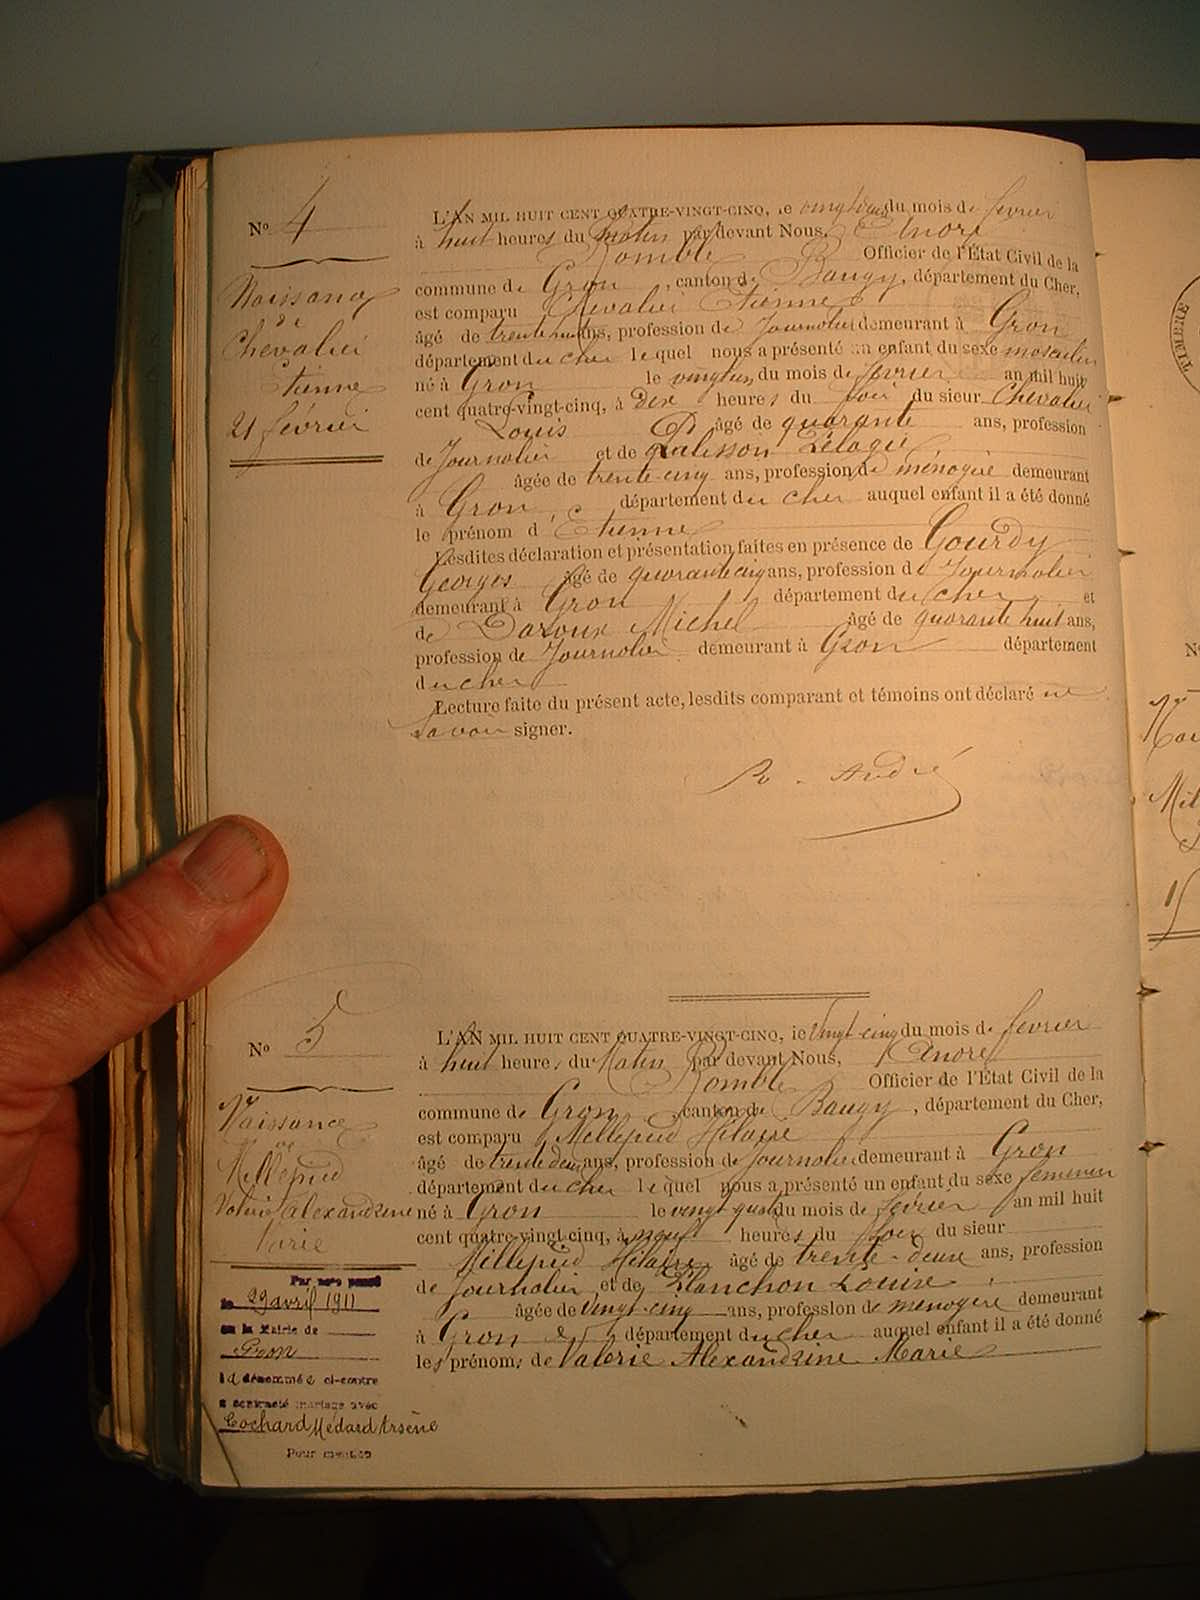 No 4
Naissance
de
Chevalier
Etienne
21 février
L'AN MIL HUIT CENT QUATRE-VINGT-CINQ, le du mois de février
à huit heures du Matin par devant Nous, André
Romble Officier de l'État Civil de la
commune de Gron, canton de Baugy, département du Cher,
est comparu Chevalier Etienne
âgé de trente huit ans, profession de Journalier demeurant à Gron
département du cher lequel nous a présenté un enfant du sexe masculin
né à Gron le vingt un du mois de février an mil huit
cent quatre-vingt-cinq, à dix heures du soir du sieur Chevalier
Louis âgé de quarante ans, profession
de Journalier et de Pélagie
âgée de trente-cinq ans, profession de ménagère demeurant
à Gron, département du cher auquel enfant il a été donné
le prénom d'Etienne
Lesdites déclaration et présentation faites en présence de Gourdy
Georges âgé de quarante cinq ans, profession de Journalier
demeurant à Gron département du cher et
de Daroux Michel âgé de quarante huit ans,
profession de Journalier demeurant à Gron département
du cher
Lecture faite du présent acte, lesdits comparant et témoins ont déclaré ne
savoir signer.
R. André
No 5
Naissance
de
Millepied
Valérie Alexandrine
Marie
Par acte passé
le 29 avril 1911
en la Mairie de
Gron
la dénommée ci-contre
a contracté mariage avec
Cochard Médard Arsène
Pour mention
L'AN MIL HUIT CENT QUATRE-VINGT-CINQ, le Vingt-cinq du mois de février
à huit heures du Matin par devant Nous, André
Romble Officier de l'État Civil de la
commune de Gron, canton de Baugy, département du Cher,
est comparu Millepied Hilaire
âgé de trente deux ans, profession de Journalier demeurant à Gron
département du cher lequel nous a présenté un enfant du sexe féminin
né à Gron le vingt quatre du mois de février an mil huit
cent quatre vingt cinq, à neuf heures du soir du sieur
Millepied Hilaire âgé de trente-deux ans, profession
de Journalier et de Planchon Louise
âgée de vingt-cinq ans, profession de ménagère demeurant
à Gron département du cher auquel enfant il a été donné
les prénoms de Valérie Alexandrine Marie
TIMBRE